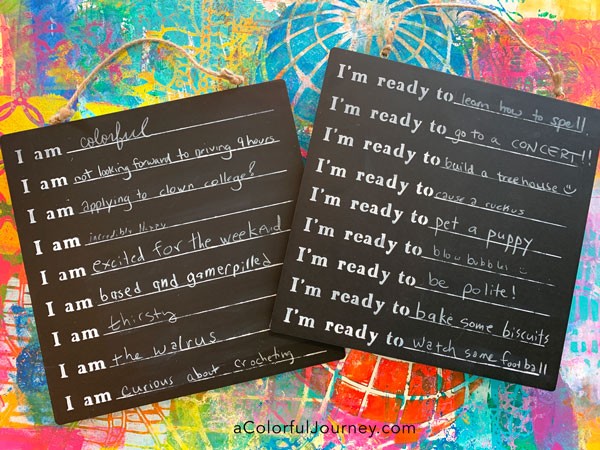 I am colorful
I am not looking forward to driving 9 hours
I am applying to clown college?
I am incredibly
I am excited for the weekend
I am based and gamerpilled
I am thirsty
I am the walrus
I am curious about crocheting
I'm ready to learn how to spell
I'm ready to go to a CONCERT!!
I'm ready to build a treehouse
I'm ready to cause a ruckus
I'm ready to pet a puppy
I'm ready to blow bubbles
I'm ready to be polite!
I'm ready to bake some biscuits
I'm ready to watch some football
aColorfulJourney.com